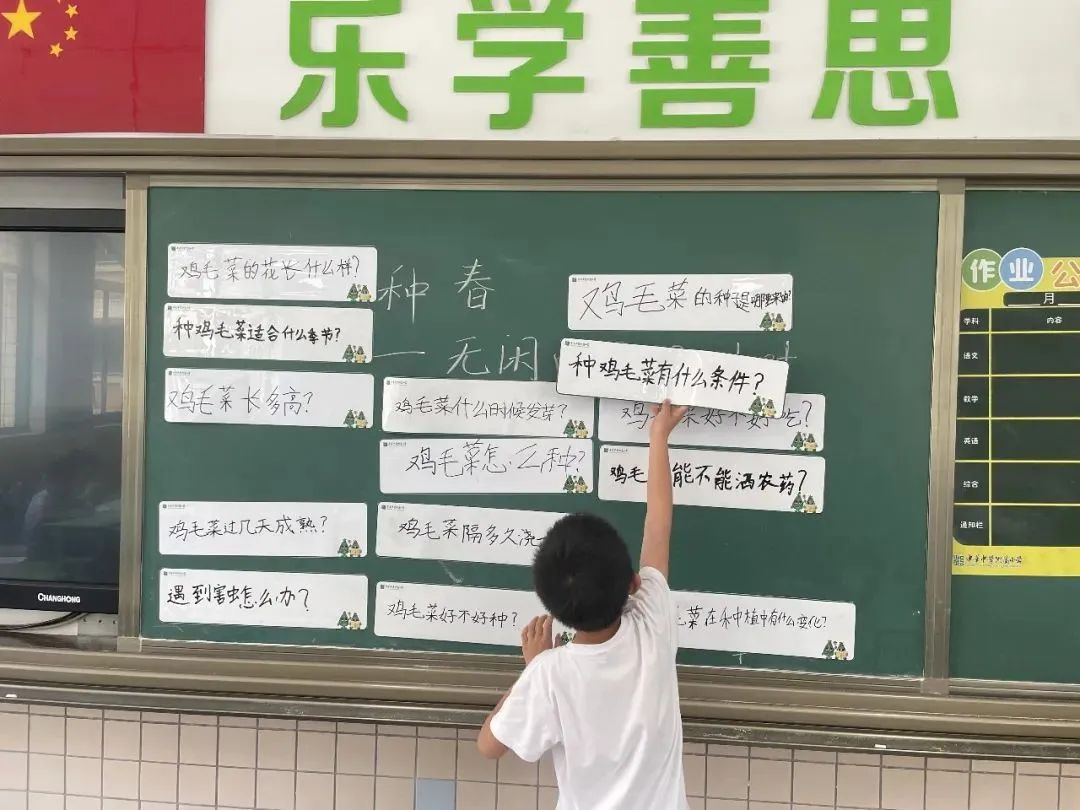 乐学善思
鸡毛菜的花长什么样?
种鸡毛菜适合什么季节?
鸡毛菜长多高?
鸡毛菜过几天成熟?
遇到害虫怎么办?
种春
一无闲
鸡毛菜什么时候发芽?
鸡毛菜怎么种?
鸡毛菜隔多久浇
鸡毛菜好不好种?
鸡毛菜的种
种鸡毛菜有什么条件?
鸡 菜好不好吃?
鸡毛 能不能洒农药?
菜在种植中有什么变化?
作业公
月
学科 内容
语文
数学
英语
综合
通知栏
CHANGHONG